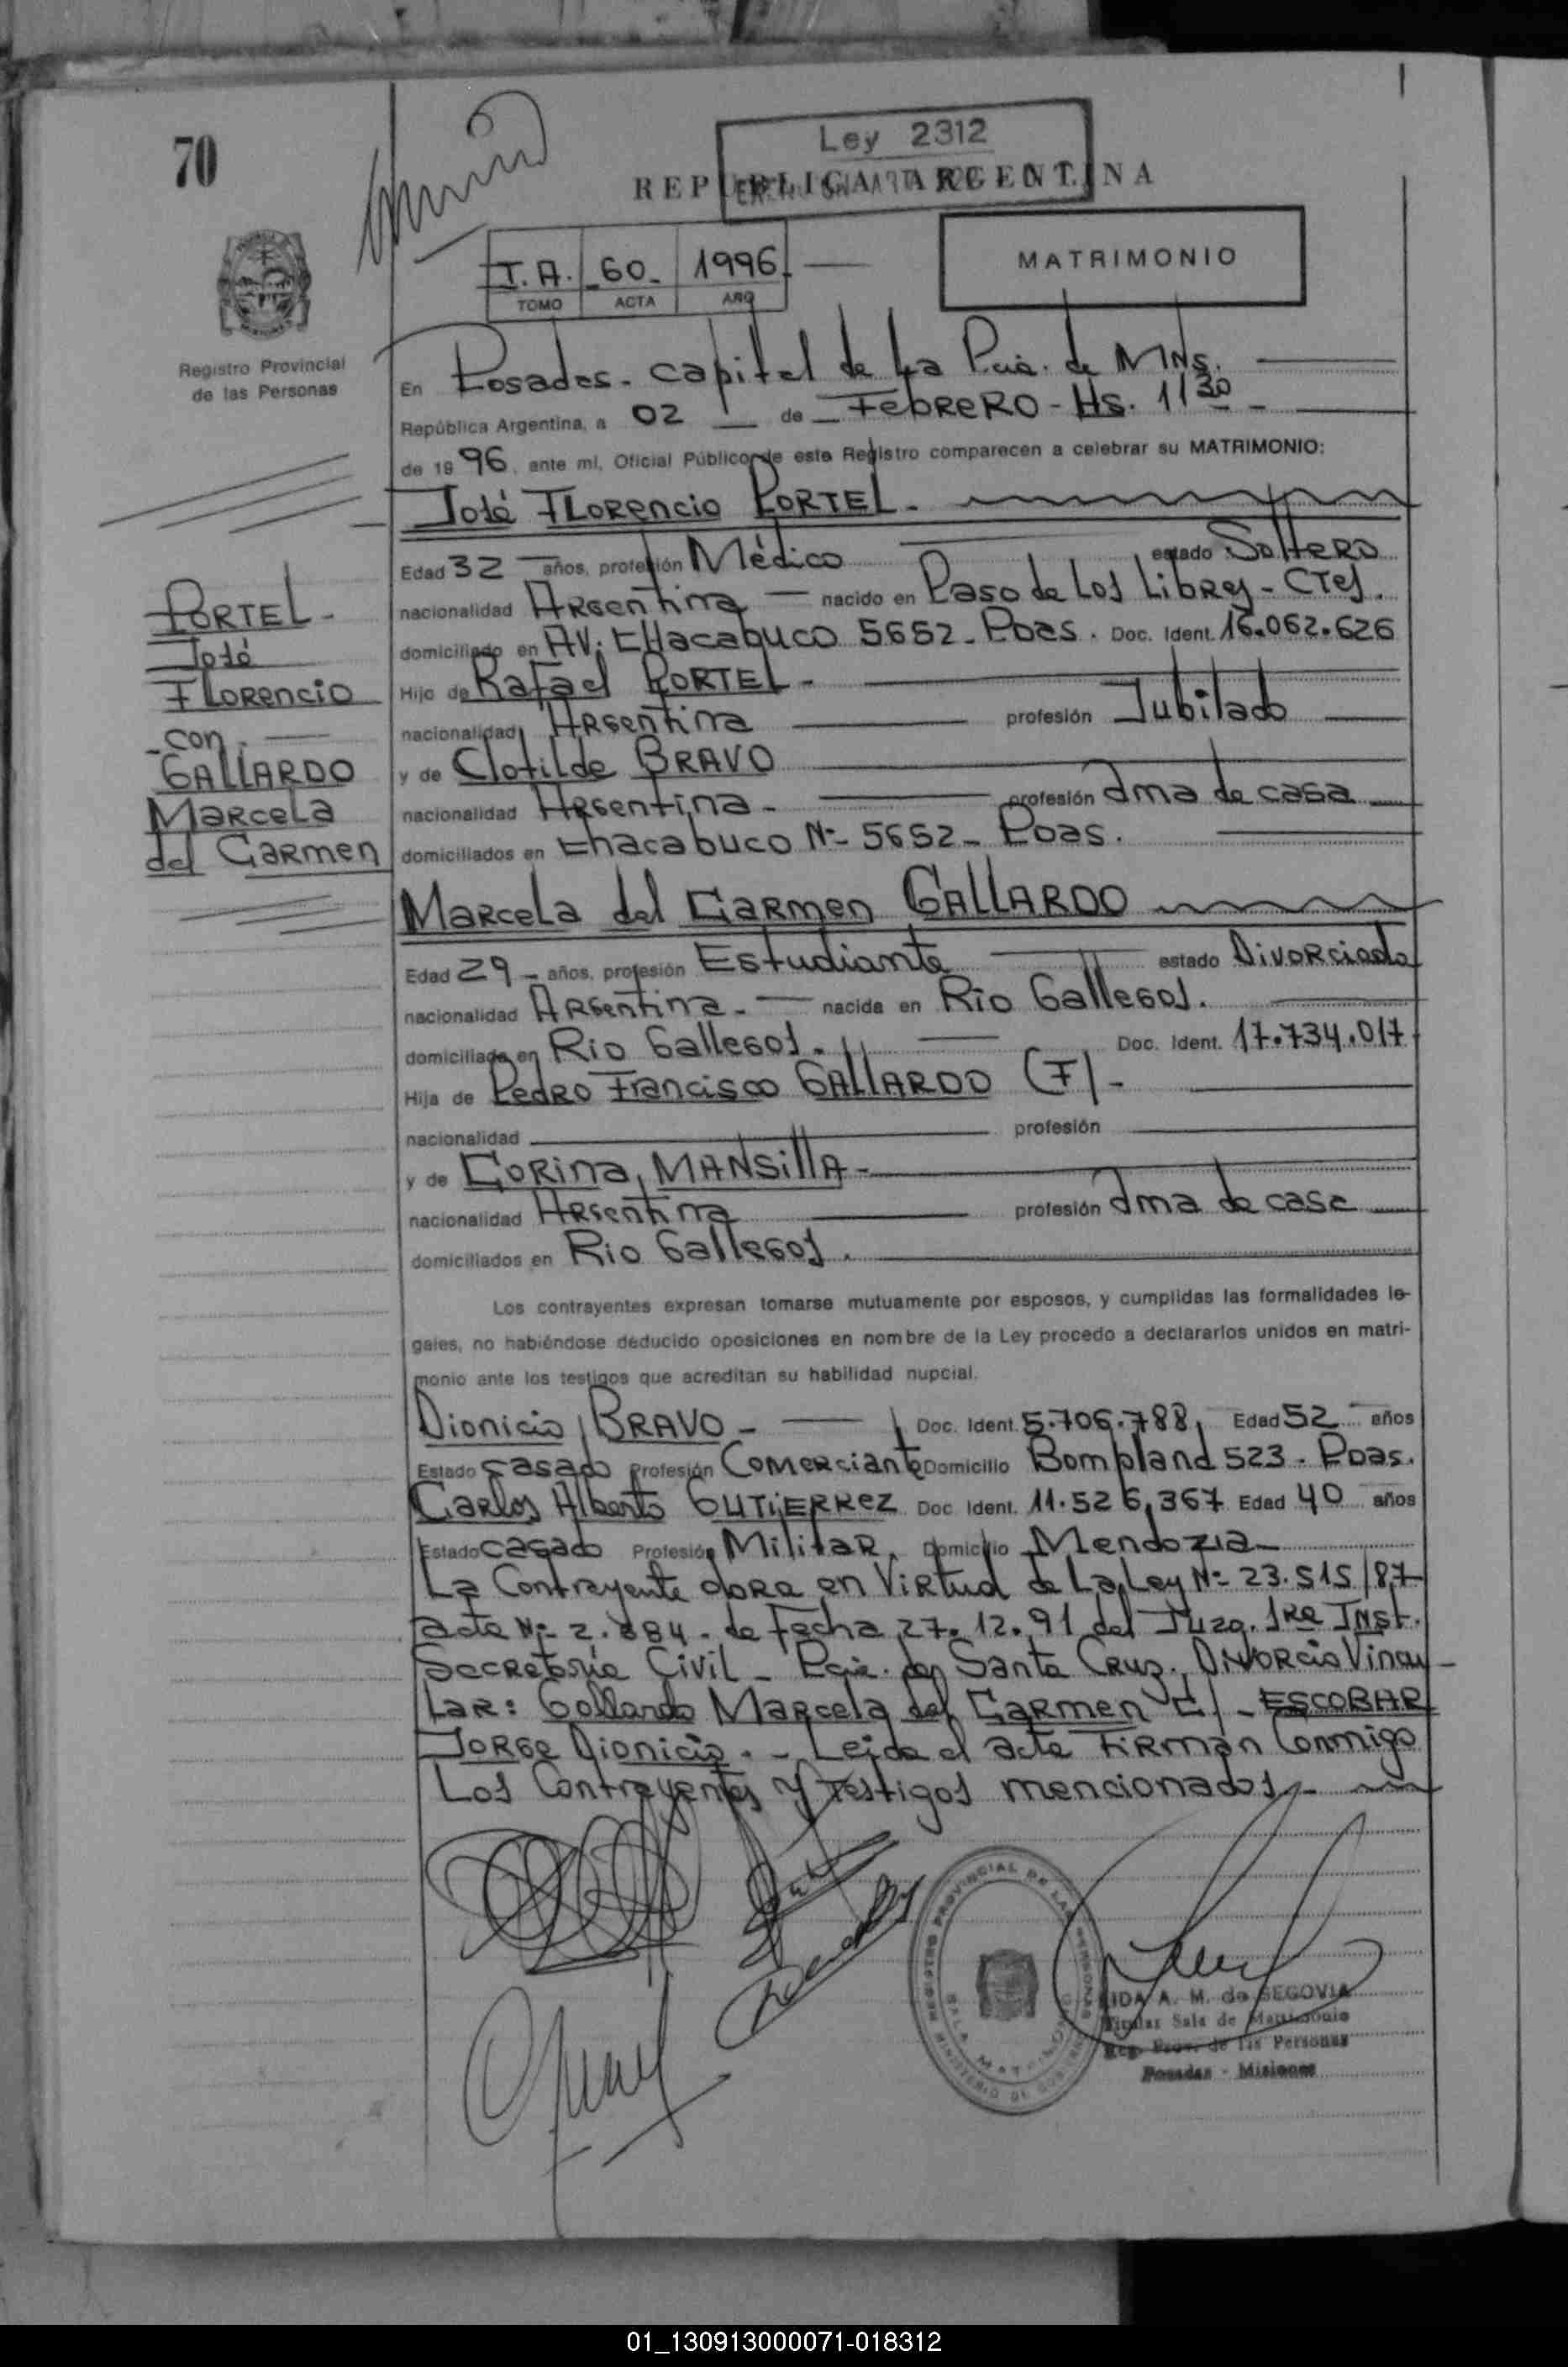 70
Ley 2312
REPUBLICA ARGENTINA
T.A. 60 1996
TOMO ACTA AÑO
MATRIMONIO
Registro Provincial
de las Personas
En Posadas - capital de La Pcia. de MNS.
República Argentina, a 02 de FebReRO - Hs. 11 30
de 1996, ante mí, Oficial Público de este Registro comparecen a celebrar su MATRIMONIO:
José FLoRencio PORTEL -
Edad 32 años, profesión Médico estado SolteRo
nacionalidad ARgentina nacido en Paso de Los LibRes - Ctes.
domiciliado en AV. CHacabuco 5652 - Pdas. Doc. Ident. 16.062.626
Hijo de RaFael PORTEL -
nacionalidad ARgentina profesión Jubilado
y de Clotilde BRAVO
nacionalidad ARgentina - profesión Ama de casa
domiciliados en Chacabuco Nº 5652 - Pdas.
PORTEL -
José
FLoRencio
- con -
GALLARDO
MaRceLa
del CaRmen
MaRceLa del CaRmen GALLARDO
Edad 29 - años, profesión Estudiante estado DivoRciada
nacionalidad ARgentina - nacida en Rio Gallegos.
domiciliada en Rio Gallegos. Doc. Ident. 17.734.017
Hija de PedRo FRancisco GALLARDO (F) -
nacionalidad profesión
y de CoRina MANSillA -
nacionalidad ARgentina profesión Ama de casa
domiciliados en Rio Gallegos.
Los contrayentes expresan tomarse mutuamente por esposos, y cumplidas las formalidades le-
gales, no habiéndose deducido oposiciones en nombre de la Ley procedo a declararlos unidos en matri-
monio ante los testigos que acreditan su habilidad nupcial.
Dionicio BRAVO - Doc. Ident. 5.706.788 Edad 52 años
Estado casado Profesión ComeRciante Domicilio Bompland 523 - Pdas.
CaRlos AlbeRto GUTiERRez Doc. Ident. 11.526.367 Edad 40 años
Estado casado Profesión MilitaR. Domicilio Mendoza -
La Contrayente obRa en ViRtud de La Ley Nº 23.515/87
acta Nº 2.884 - de Fecha 27.12.91 del Juzg. 1Ra INst.
SecRetaria Civil - Pcia. de Santa CRuz. DivoRcio Vincu
LaR: Gallardo MaRcela del CaRmen C/ - ESCOBAR
JoRge Dionicio. - Leida el acta FiRman Conmigo
Los Contrayentes y testigos mencionados -
REGISTRO PROVINCIAL DE LAS PERSONAS
A. M. de SEGOVIA
Titular Sala de Matrimonio
Reg. Prov. de las Personas
Posadas - Misiones
01_130913000071-018312